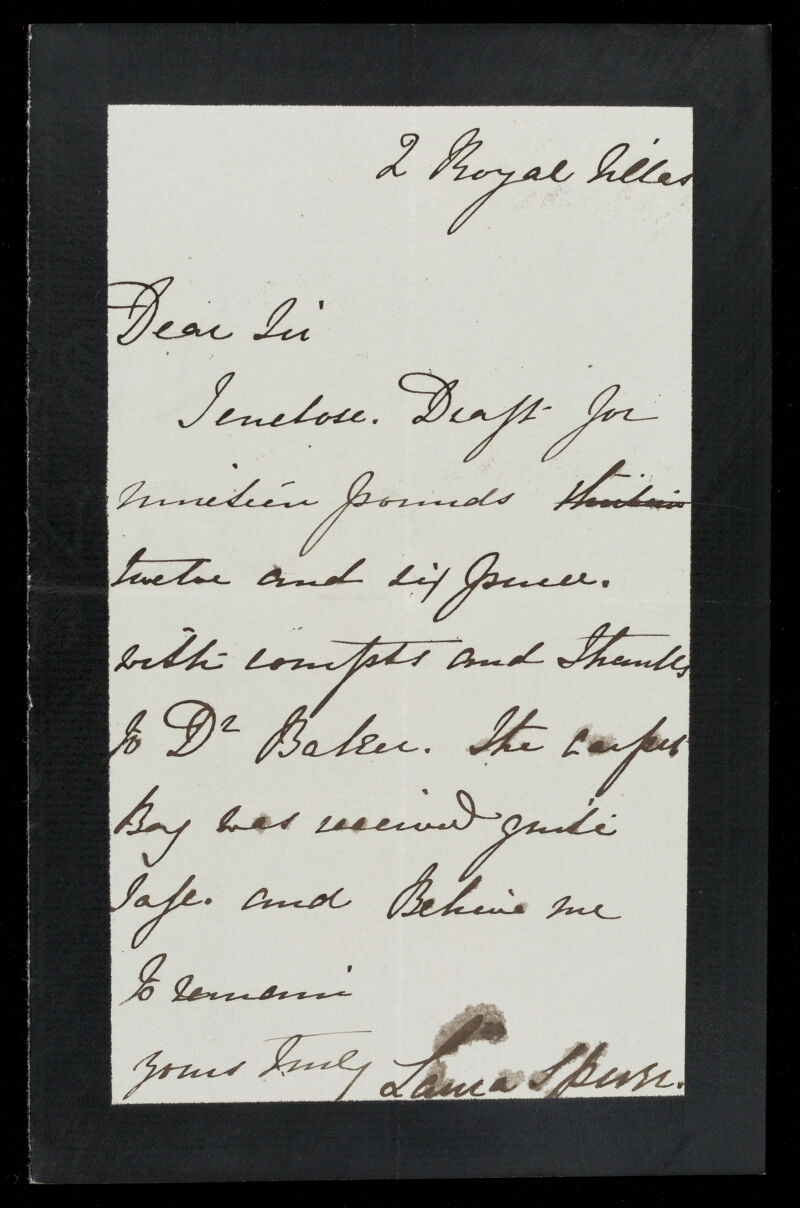 2 Royal Villas
Dear Sir
I enclose. Draft for
nineteen pounds thirteen
twelve and six pence.
with compts and Thanks
to Dr Baker. The carpet
Bag was received quite
safe. and Believe me
to remain
yours Truly Laura